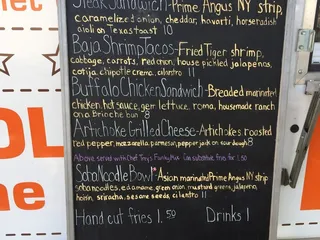 Steak Sandwich-Prime Angus NY strip,
caramelized onion, cheddar, havarti, horseradish
aioli on Texas toast 10
Baja Shrimp Tacos-Fried Tiger shrimp,
cabbage, carrots, red onion, house pickled jalapenos,
cotija, chipotle crema, cilantro 11
Buffalo Chicken Sandwich-Breaded marinated
chicken, hot sauce, ger lettuce, roma, housemade ranch
on a Brioche bun 8
Artichoke Grilled Cheese-Artichokes roasted
red pepper, mozzarella, parmesan, pepper jack on sourdough 8
Above served with Chef Troy's Funky Mac Can substitute fries for 1.50
Soba Noodle Bowl-Asian marinated Prime Angus NY strip
soba noodles, edamame, green onion, mustard greens, jalapeno,
hoisin, sriracha, sesame seeds, cilantro 11
Hand cut fries 1.50 Drinks 1
net
OL
ne